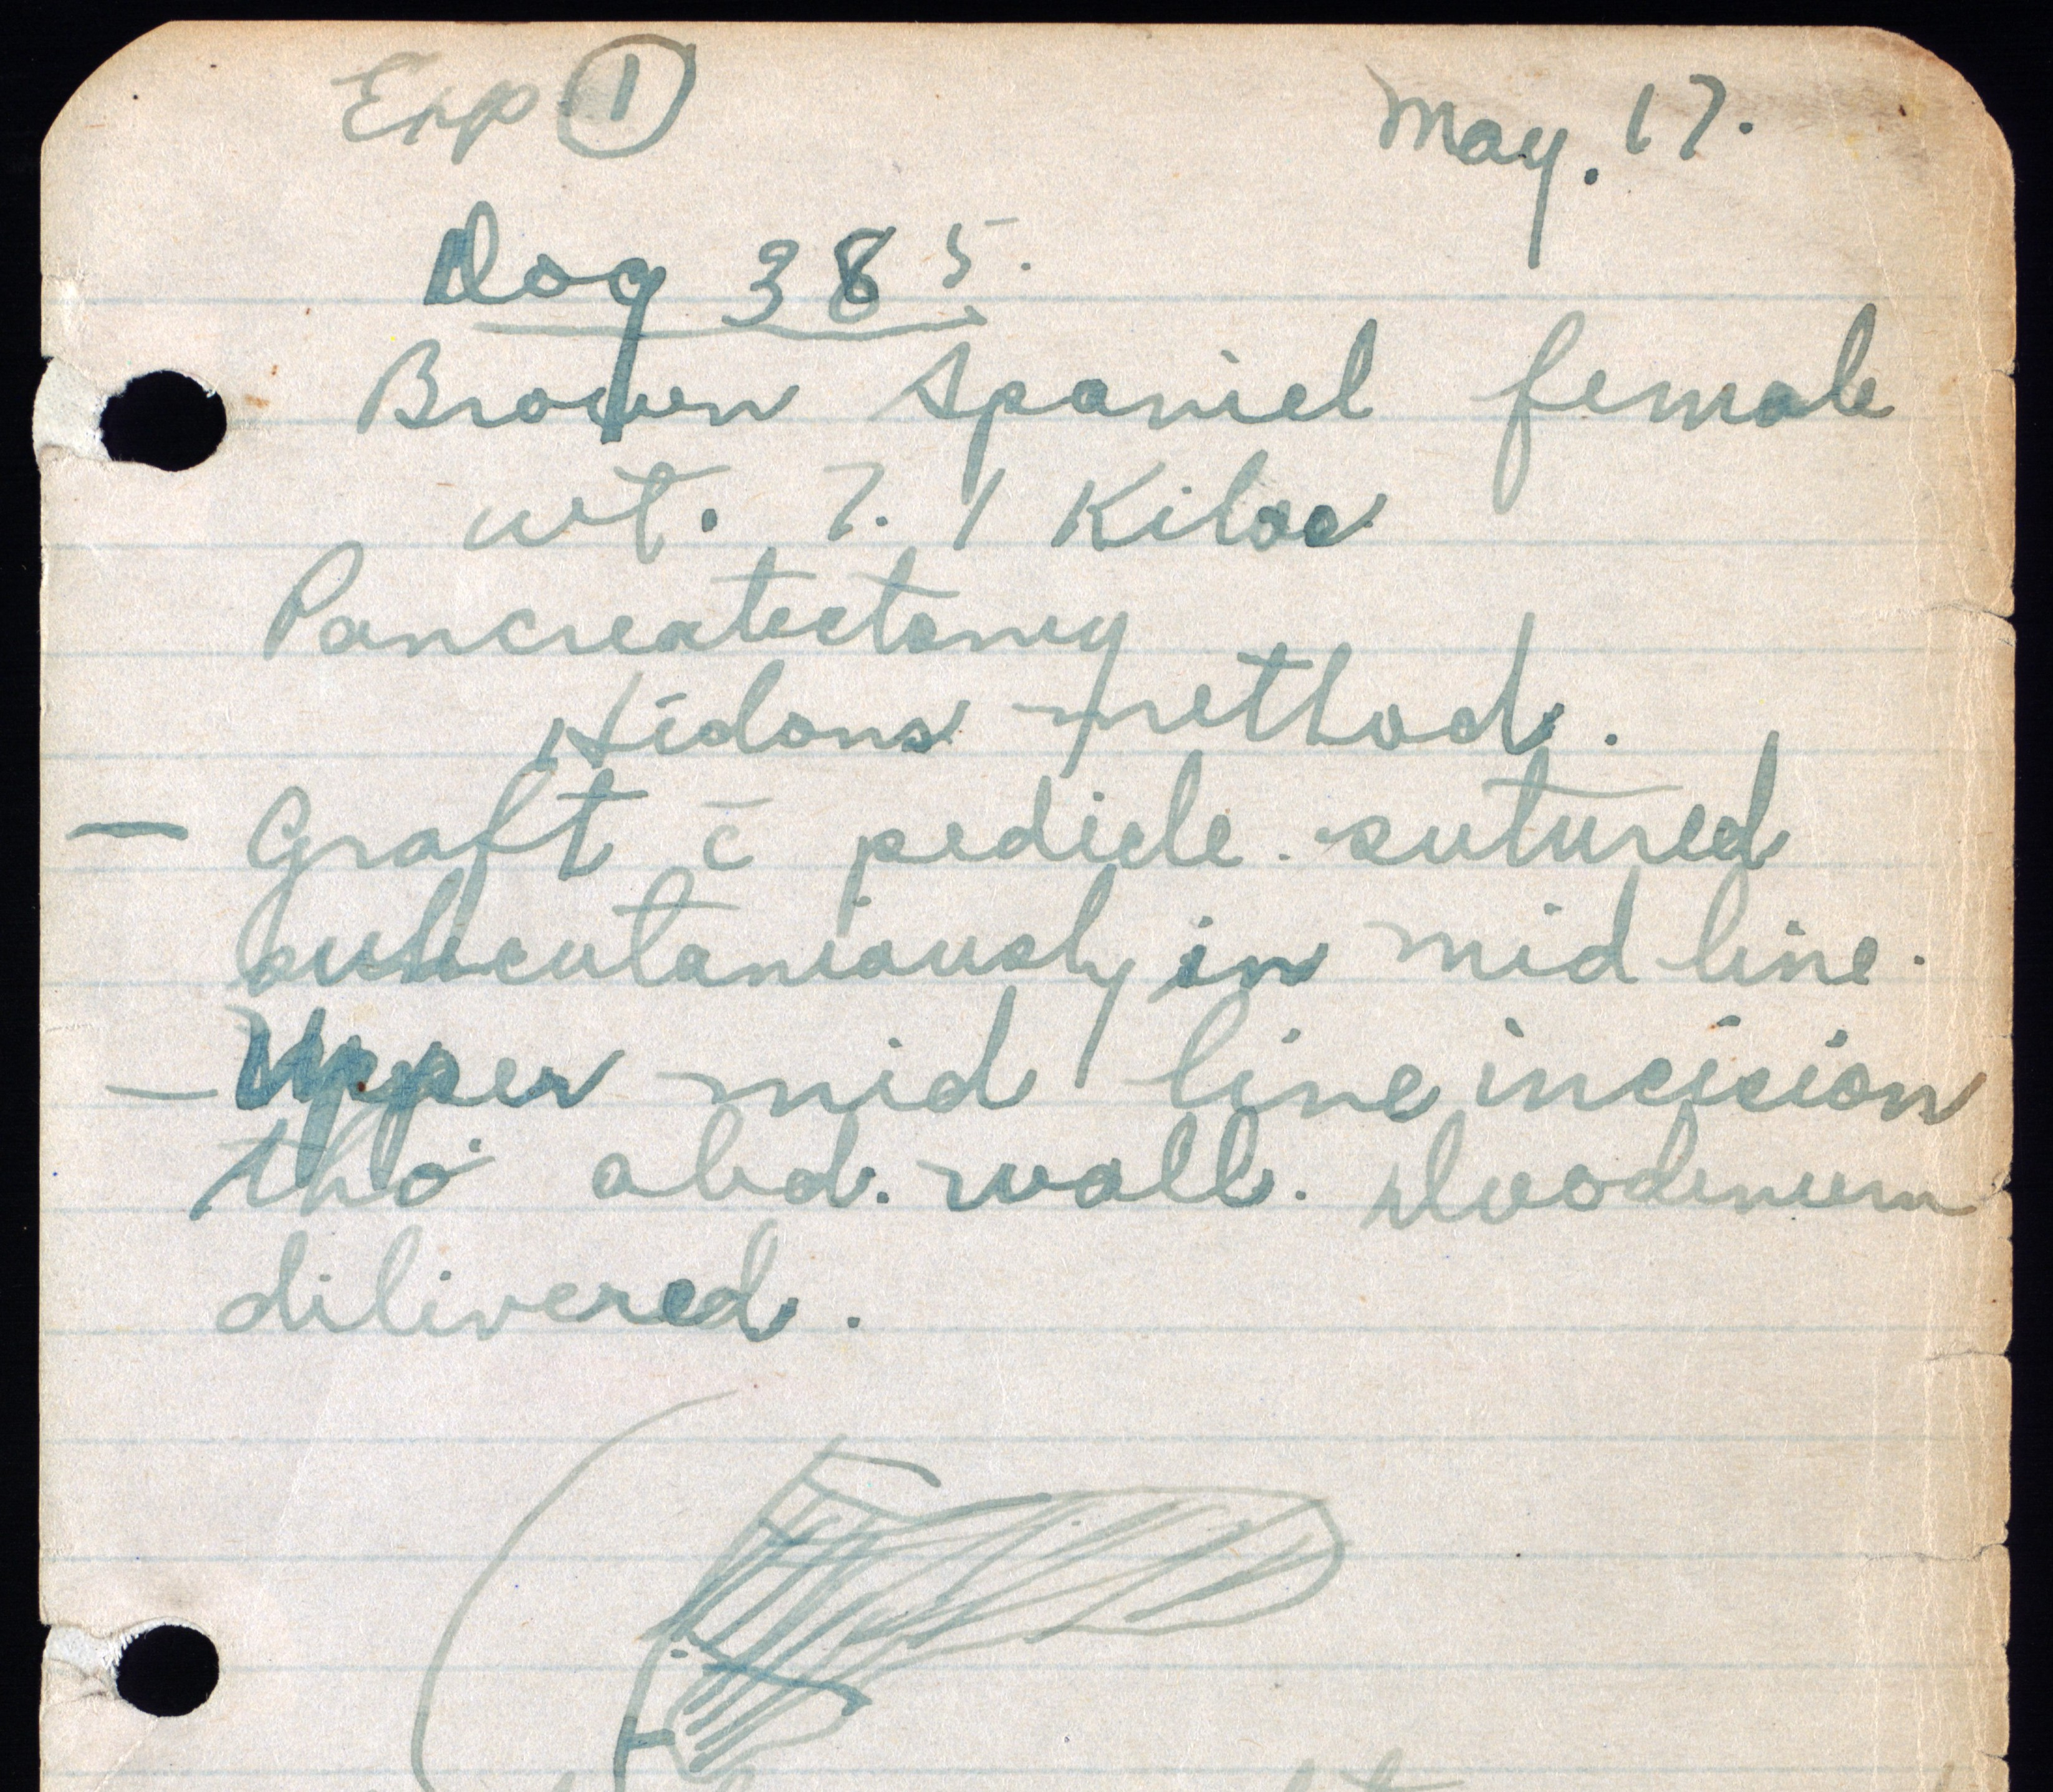 Exp ① May. 17.
Dog 385.
Brown Spaniel female
wt. 7.1 Kilos
Pancreatectomy
Hédons method.
— Graft c̄ pedicle. sutured
subcutaniously in mid line.
— Upper mid line incision
tho' abd. wall. Duodenum
dilivered.